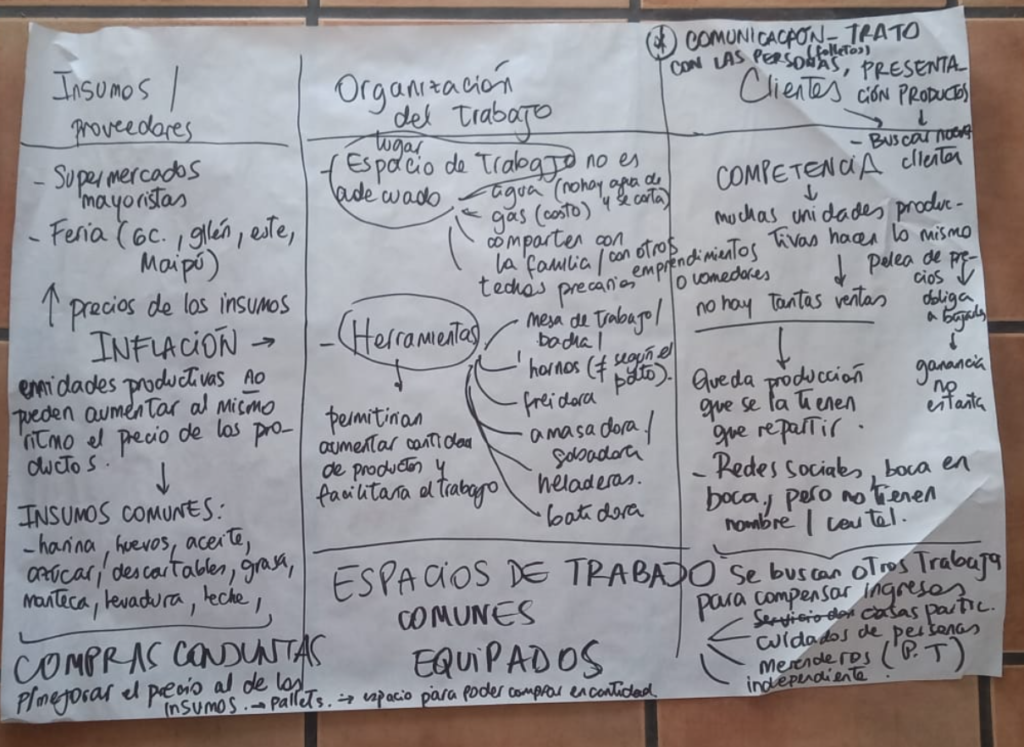 Insumos /
proveedores
- Supermercados
mayoristas
- Feria (GC., gllén, este,
Maipú)
↑ precios de los insumos
INFLACIÓN →
unidades productivas no
pueden aumentar al mismo
ritmo el precio de los pro-
ductos.
↓
INSUMOS COMUNES:
- harina, huevos, aceite,
azúcar, descartables, grasa,
manteca, levadura, leche,
COMPRAS CONJUNTAS
p/mejorar el precio al de los
insumos. → pallets. → espacio para poder comprar en cantidad.
Organización
del Trabajo
lugar
- Espacio de Trabajo no es
adecuado
agua (no hay agua de
y se corta)
gas (costo)
comparten con
la familia / con otros
emprendimientos
o comedores
techos precarios
- Herramientas
↓
permitirían
aumentar cantidad
de productos y
facilitaría el trabajo
mesa de trabajo /
bacha /
hornos (≠ según el
pcto).
freidora
amasadora /
sobadora
heladeras.
batidora
ESPACIOS DE TRABAJO
COMUNES
EQUIPADOS
* COMUNICACIÓN - TRATO
CON LAS PERSONAS, (folletos) PRESENTA
CIÓN PRODUCTOS
Clientes
- Buscar
clientes
COMPETENCIA
↓
muchas unidades produc-
tivas hacen lo mismo
↓
no hay tantas ventas
pelea de pre-
cios
↓
obliga
a bajarlos
↓
ganancia
no
es tanta
↓
Queda producción
que se la tienen
que repartir.
- Redes sociales, boca en
boca, pero no tienen
nombre / cartel.
Se buscan otros Trabajos
para compensar ingresos
Servicio de casas partic.
cuidados de personas
merenderos (P.T)
independiente.